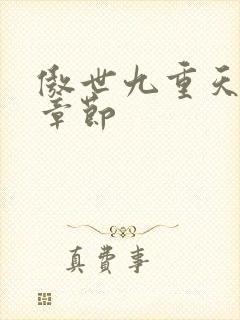 傲世九重天
章節
真費事